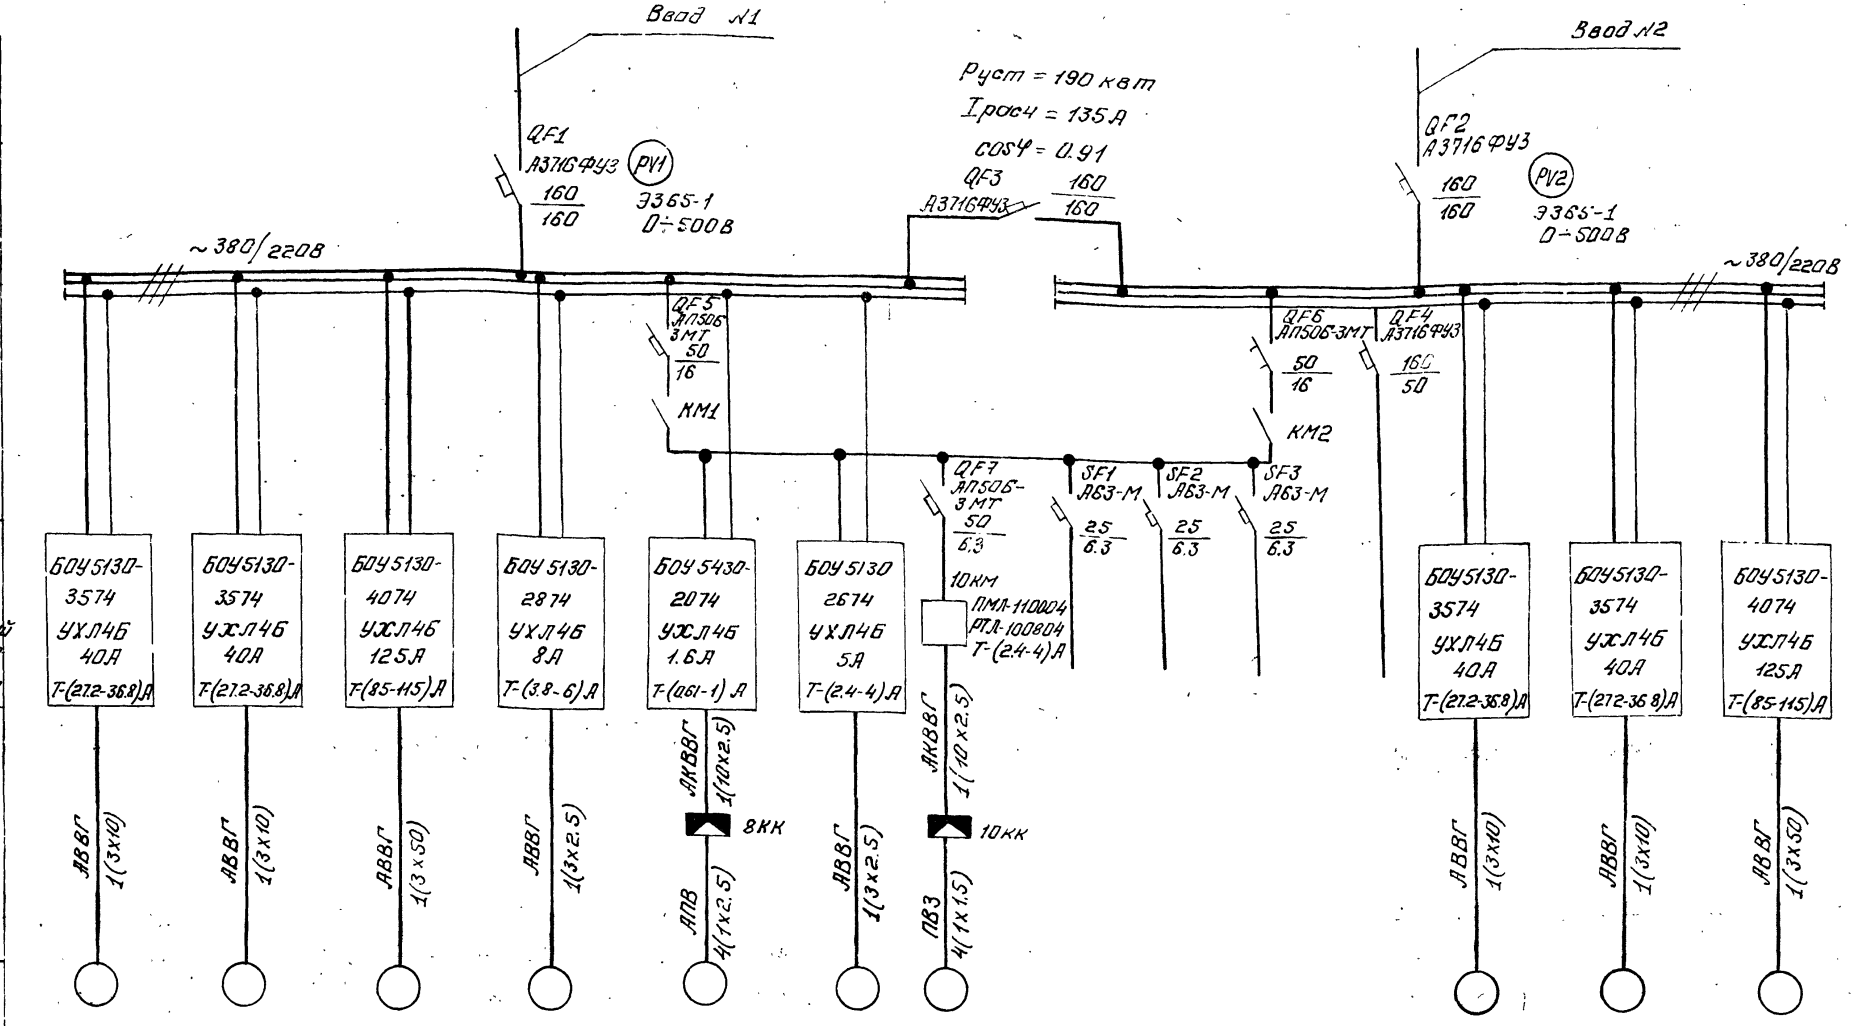 Ввод №1
Ввод №2
Руст = 190 квт
Iрасч = 135 А
cosφ = 0.91
QF1
А3716ФУЗ
160
160
PV1
Э365-1
0÷500В
QF3
А3716ФУЗ
160
160
QF2
А3716ФУЗ
160
160
PV2
Э365-1
0÷500В
~380/220В
~380/220В
QF5
АП50Б
3МТ
50
16
КМ1
QF6
АП50Б-3МТ
50
16
КМ2
QF4
А3716ФУЗ
160
50
QF7
АП50Б-
3МТ
50
6.3
SF1
А63-М
25
6.3
SF2
А63-М
25
6.3
SF3
А63-М
25
6.3
БОУ5130-
3574
УХЛ4Б
40А
Т-(27.2-36.8)А
БОУ5130-
3574
УХЛ4Б
40А
Т-(27.2-36.8)А
БОУ5130-
4074
УХЛ4Б
125А
Т-(85-115)А
БОУ5130-
2874
УХЛ4Б
8А
Т-(3.8-6)А
БОУ5430-
2074
УХЛ4Б
1.6А
Т-(0.61-1)А
БОУ5130
2674
УХЛ4Б
5А
Т-(2.4-4)А
10КМ
ПМЛ-110004
РТЛ-100804
Т-(2.4-4)А
БОУ5130-
3574
УХЛ4Б
40А
Т-(27.2-36.8)А
БОУ5130-
3574
УХЛ4Б
40А
Т-(27.2-36.8)А
БОУ5130-
4074
УХЛ4Б
125А
Т-(85-115)А
АВВГ
1(3х10)
АВВГ
1(3х10)
АВВГ
1(3х50)
АВВГ
1(3х2.5)
АКВВГ
1(10х2.5)
8КК
АПВ
4(1х2.5)
АВВГ
1(3х2.5)
АКВВГ
1(10х2.5)
10КК
ПВ3
4(1х1.5)
АВВГ
1(3х10)
АВВГ
1(3х10)
АВВГ
1(3х50)